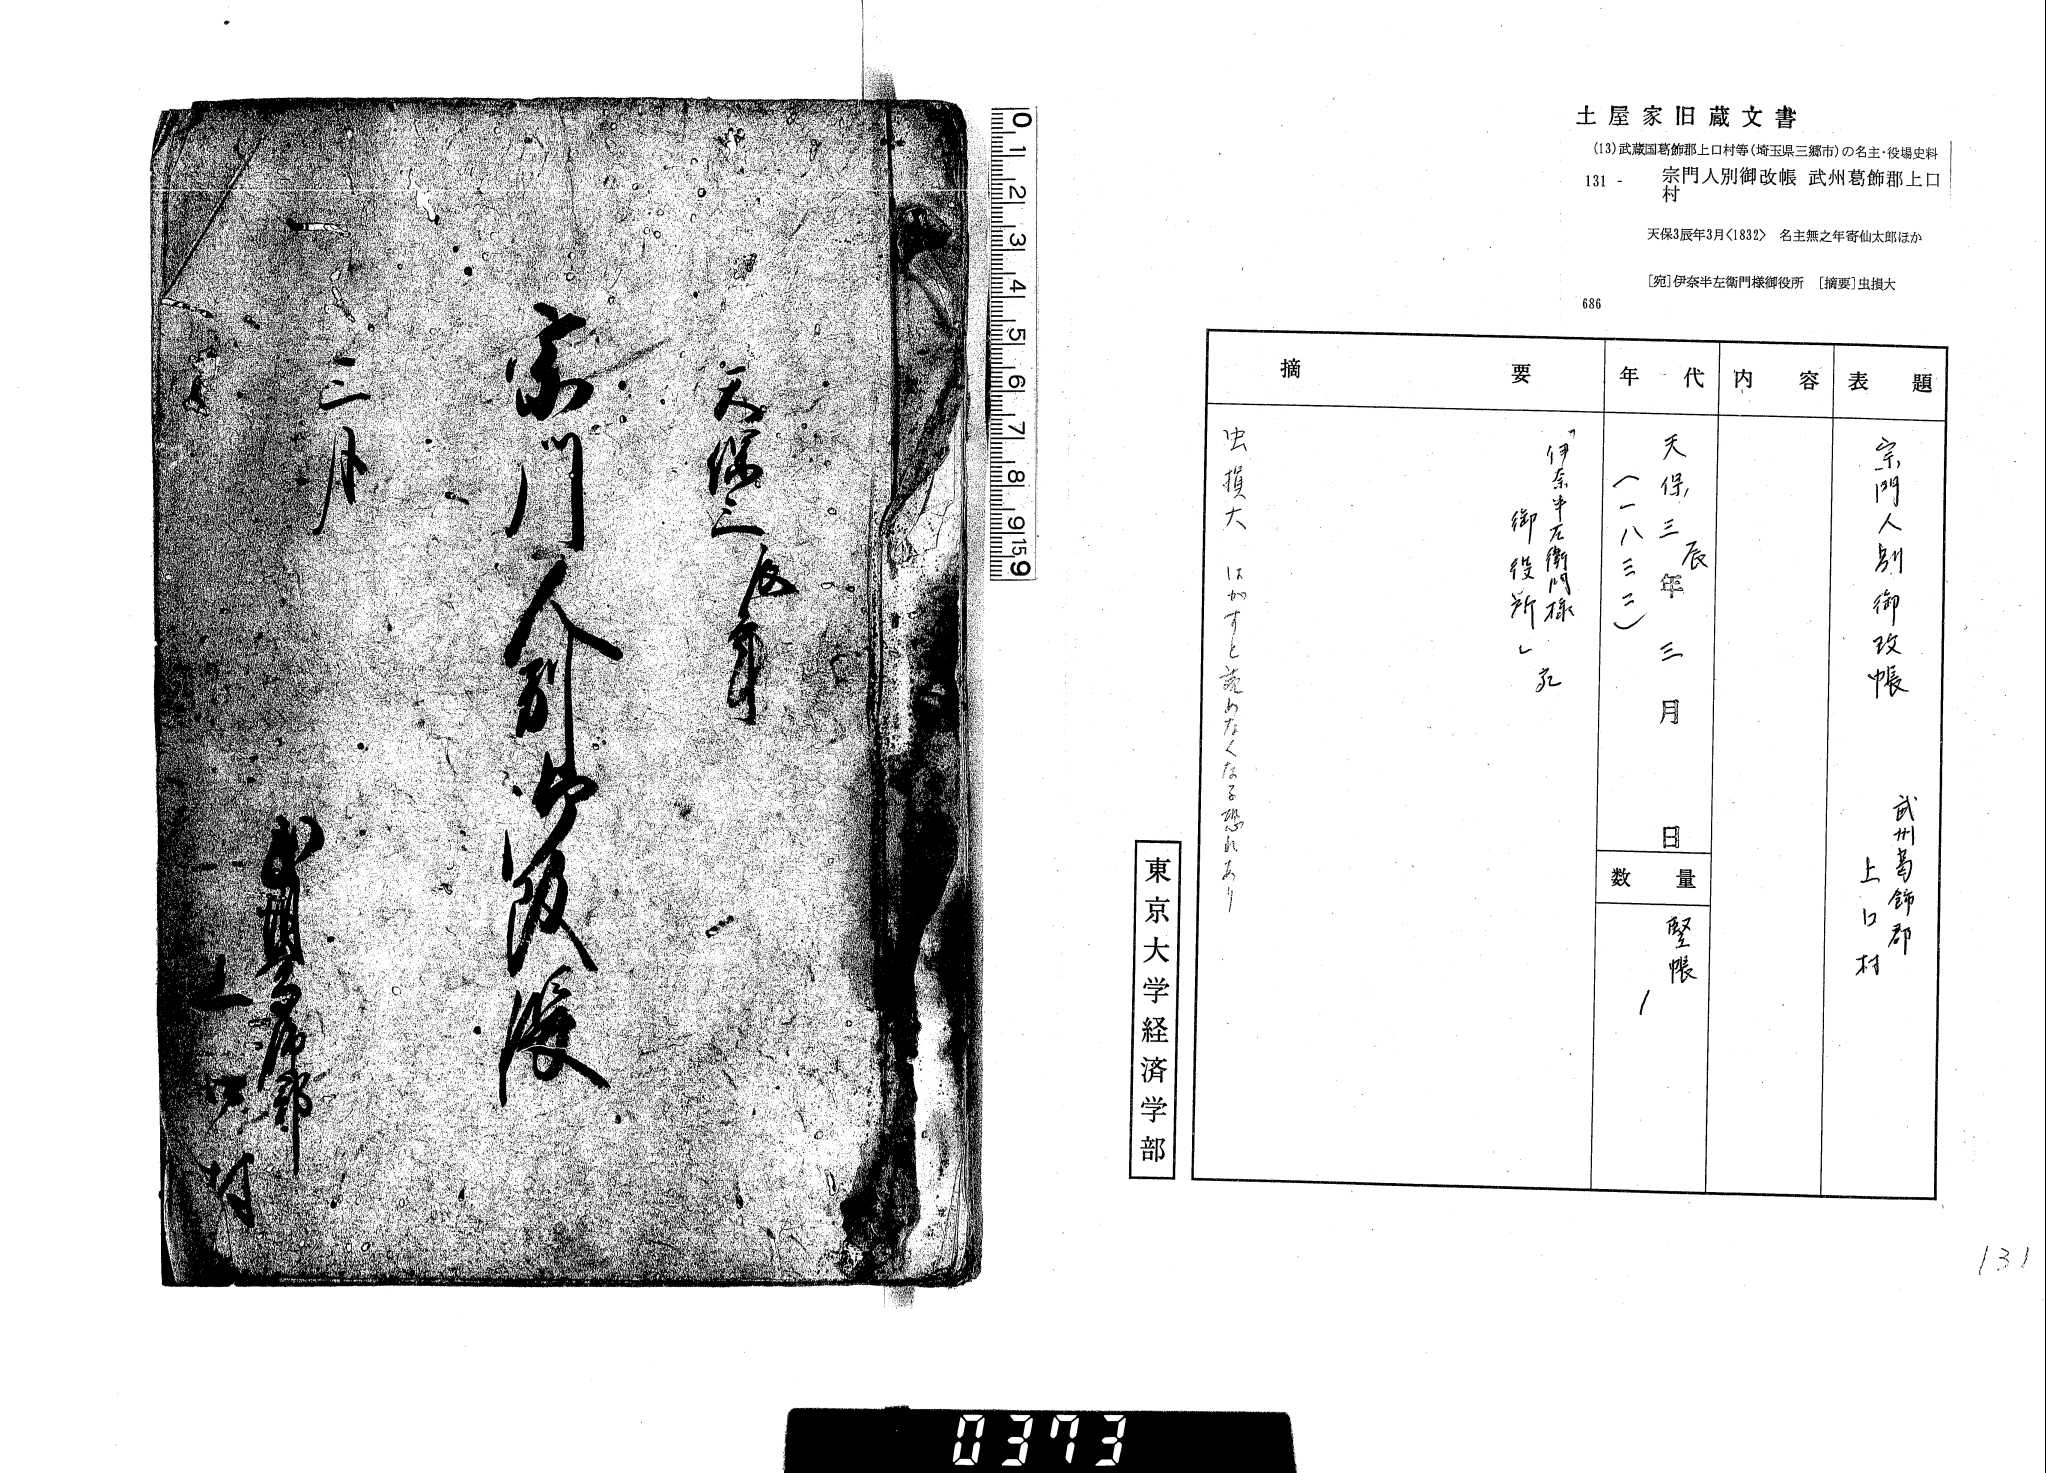 土屋家旧蔵文書
(13)武蔵国葛飾郡上口村等(埼玉県三郷市)の名主・役場史料
131 - 宗門人別御改帳 武州葛飾郡上口
村
天保3辰年3月<1832> 名主無之年寄仙太郎ほか
[宛]伊奈半左衛門様御役所 [摘要]虫損大
686
表題
宗門人別御改帳
武州葛飾郡
上口村
内容
年代
天保三辰年三月 日
(一八三二)
数量
竪帳
1
摘要
「伊奈半左衛門様
御役所」宛
虫損大 はがすと読めなくなる恐れあり
東京大学経済学部
131
天保三
辰年
宗門人別御改帳
三月
武州葛飾郡
上口村
0 1 2 3 4 5 6 7 8 9 15 9
0373